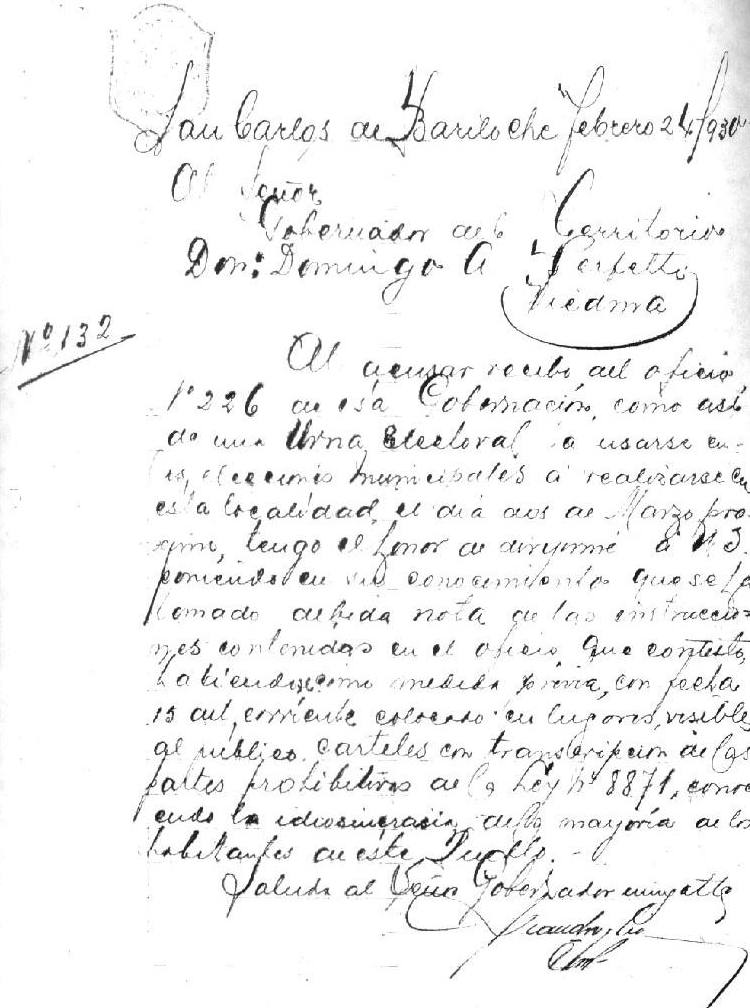 San Carlos de Bariloche Febrero 24/930
Al Señor
Gobernador del Territorio
Don: Domingo A Perfetti
Viedma
Nº 132
Al acusar recibo del oficio
Nº 226 de esa Gobernación, como asi
de una Urna Electoral a usarse en
las elecciones municipales a realizarse en
esta localidad, el dia dos de Marzo pro-
ximo, tengo el honor de dirijirme a U S.
poniendo en su conocimiento que se ha
tomado debida nota de las instruccio-
nes contenidas en el oficio que contesto,
habiendose como medida previa, con fecha
15 del corriente colocado en lugares visibles
al público, carteles con transcripcion de las
partes prohibitivas de la Ley Nº 8871, conoci
endo la idiosincracia de la mayoría de los
habitantes de este Pueblo.-
Saluda al Señor Gobernador muy atte